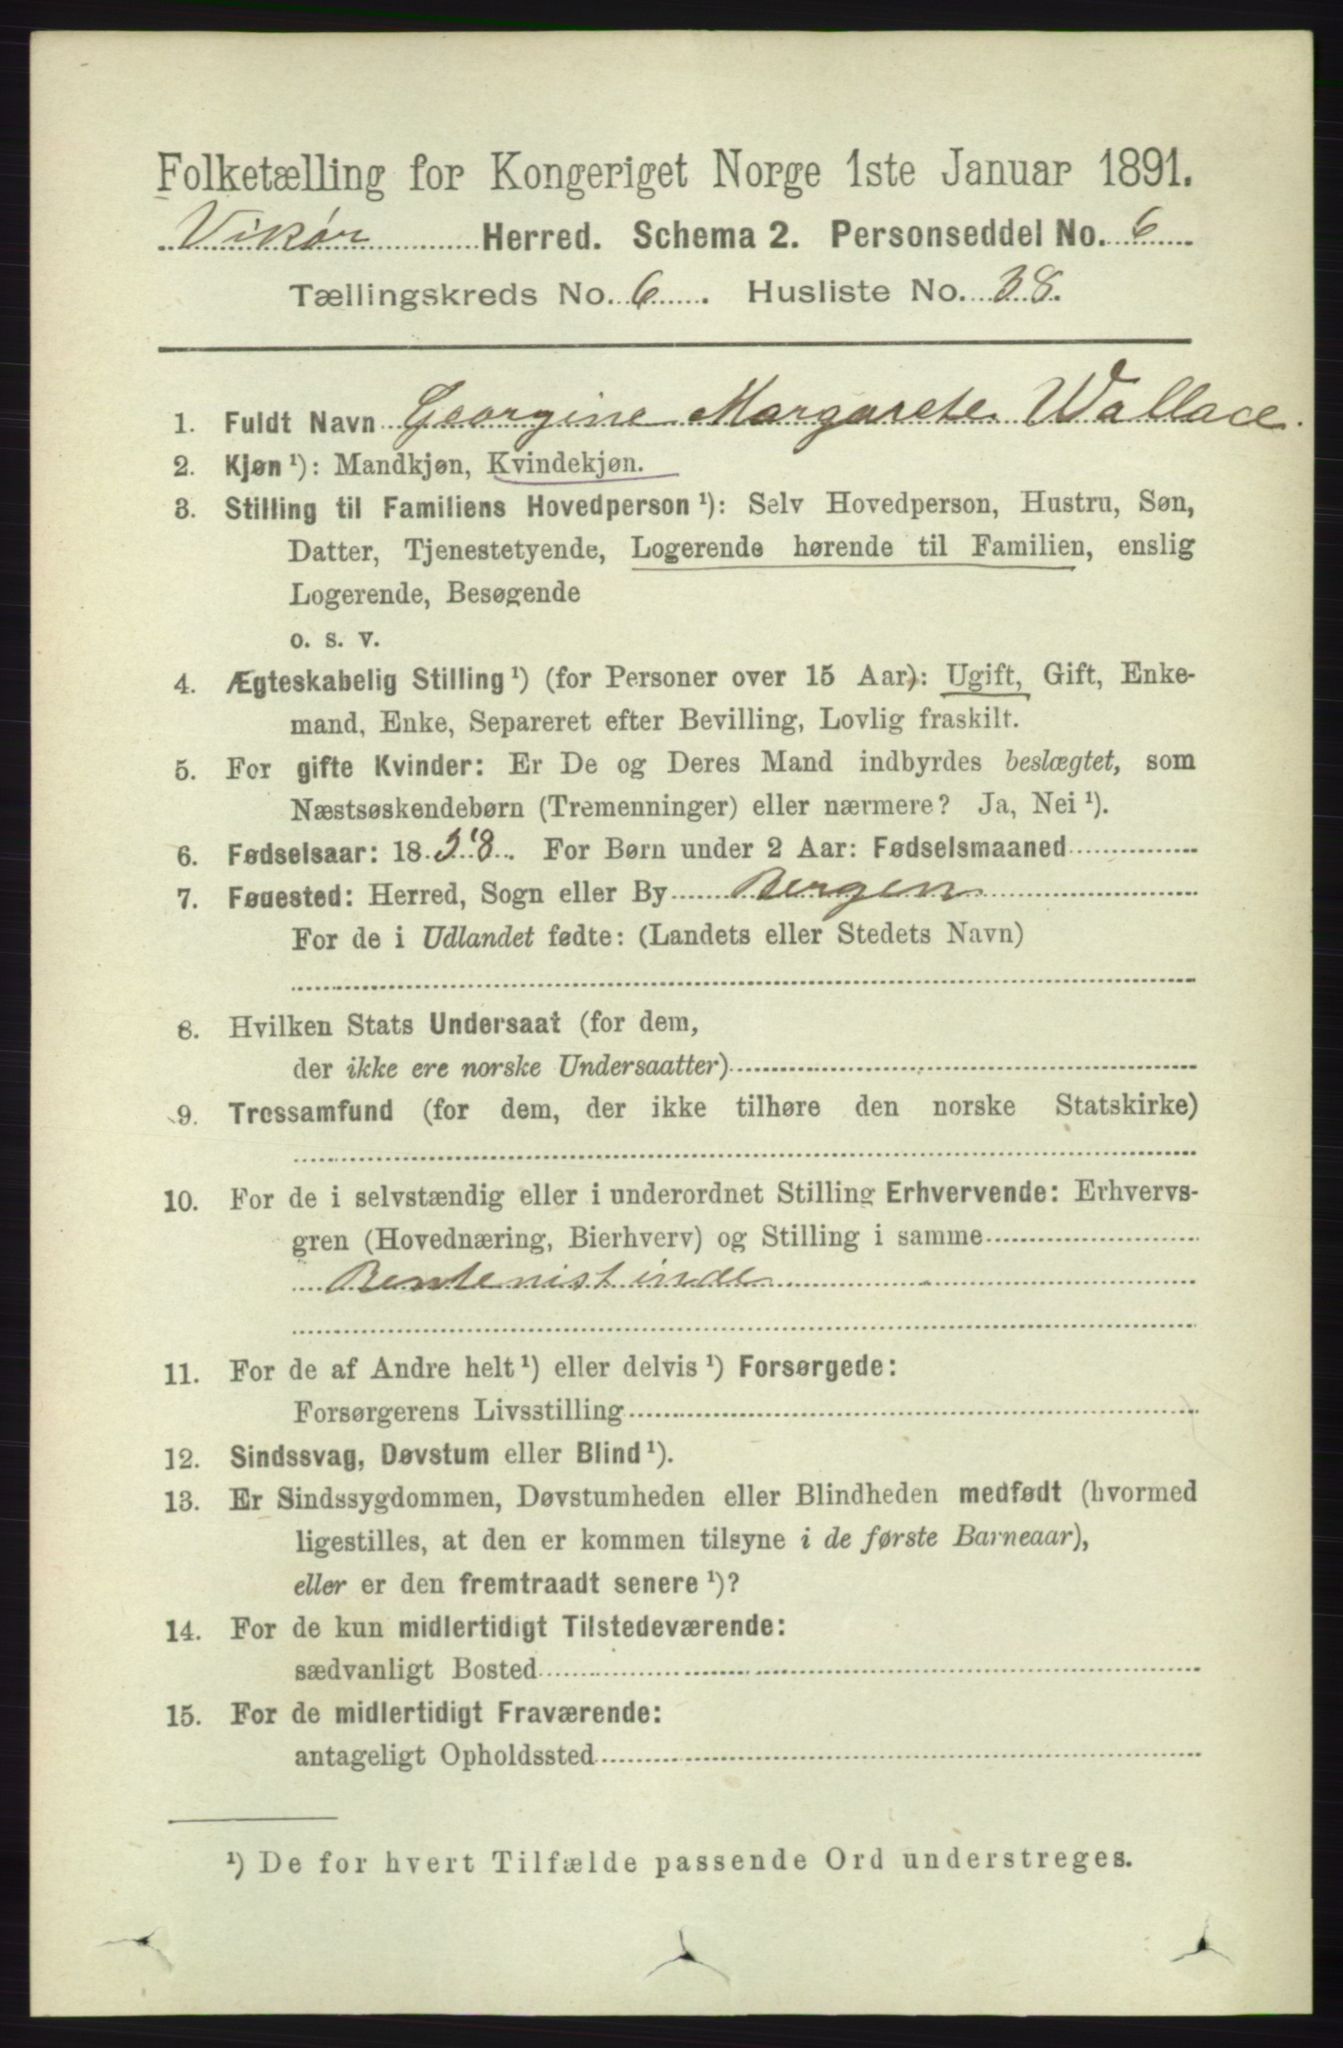 Folketælling for Kongeriget Norge 1ste Januar 1891.
Vikør Herred. Schema 2. Personseddel No. 6
Tællingskreds No. 6. Husliste No. 38.
1. Fuldt Navn Georgine Margarete Wallace.
2. Kjøn ¹): Mandkjøn, Kvindekjøn.
3. Stilling til Familiens Hovedperson ¹): Selv Hovedperson, Hustru, Søn,
Datter, Tjenestetyende, Logerende hørende til Familien, enslig
Logerende, Besøgende
o. s. v.
4. Ægteskabelig Stilling ¹) (for Personer over 15 Aar): Ugift, Gift, Enke-
mand, Enke, Separeret efter Bevilling, Lovlig fraskilt.
5. For gifte Kvinder: Er De og Deres Mand indbyrdes beslægtet, som
Næstsøskendebørn (Tremenninger) eller nærmere? Ja, Nei ¹).
6. Fødselsaar: 1838. For Børn under 2 Aar: Fødselsmaaned
7. Føuested: Herred, Sogn eller By Bergen
For de i Udlandet fødte: (Landets eller Stedets Navn)
8. Hvilken Stats Undersaat (for dem,
der ikke ere norske Undersaatter)
9. Trossamfund (for dem, der ikke tilhøre den norske Statskirke)
10. For de i selvstændig eller i underordnet Stilling Erhvervende: Erhvervs-
gren (Hovednæring, Bierhverv) og Stilling i samme
Rentenistinde
11. For de af Andre helt ¹) eller delvis ¹) Forsørgede:
Forsørgerens Livsstilling
12. Sindssvag, Døvstum eller Blind ¹).
13. Er Sindssygdommen, Døvstumheden eller Blindheden medfødt (hvormed
ligestilles, at den er kommen tilsyne i de første Barneaar),
eller er den fremtraadt senere ¹)?
14. For de kun midlertidigt Tilstedeværende:
sædvanligt Bosted
15. For de midlertidigt Fraværende:
antageligt Opholdssted
¹) De for hvert Tilfælde passende Ord understreges.